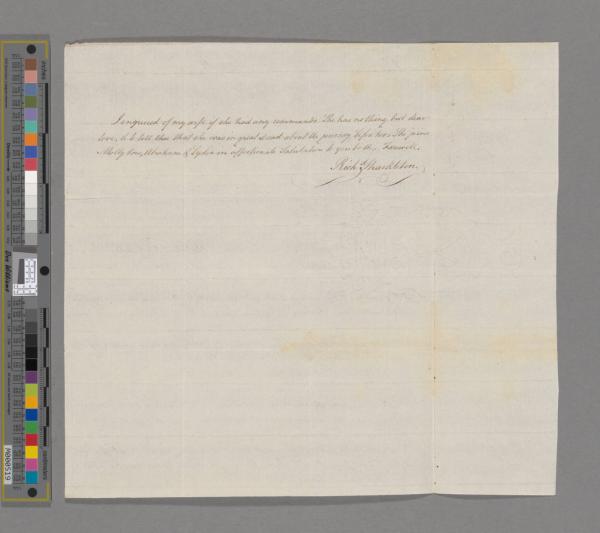 I enquired of my wife if she had any commands. She has nothing but dear
love, & to tell thee that she was in great dread about the journey before her. She joins
Molly, Abraham & Lydia in affectionate Salutation to you both. Farewell.
Rich.d Shackleton.
inches
centimetres
Don Williams
A000519